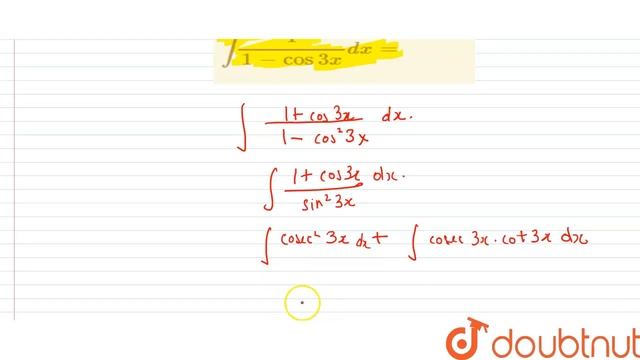 ∫ 1/(1 − cos 3x) dx =
∫ (1 + cos 3x)/(1 − cos² 3x) dx.
∫ (1 + cos 3x)/(sin² 3x) dx.
∫ cosec² 3x dx + ∫ cosec 3x · cot 3x dx
doubtnut